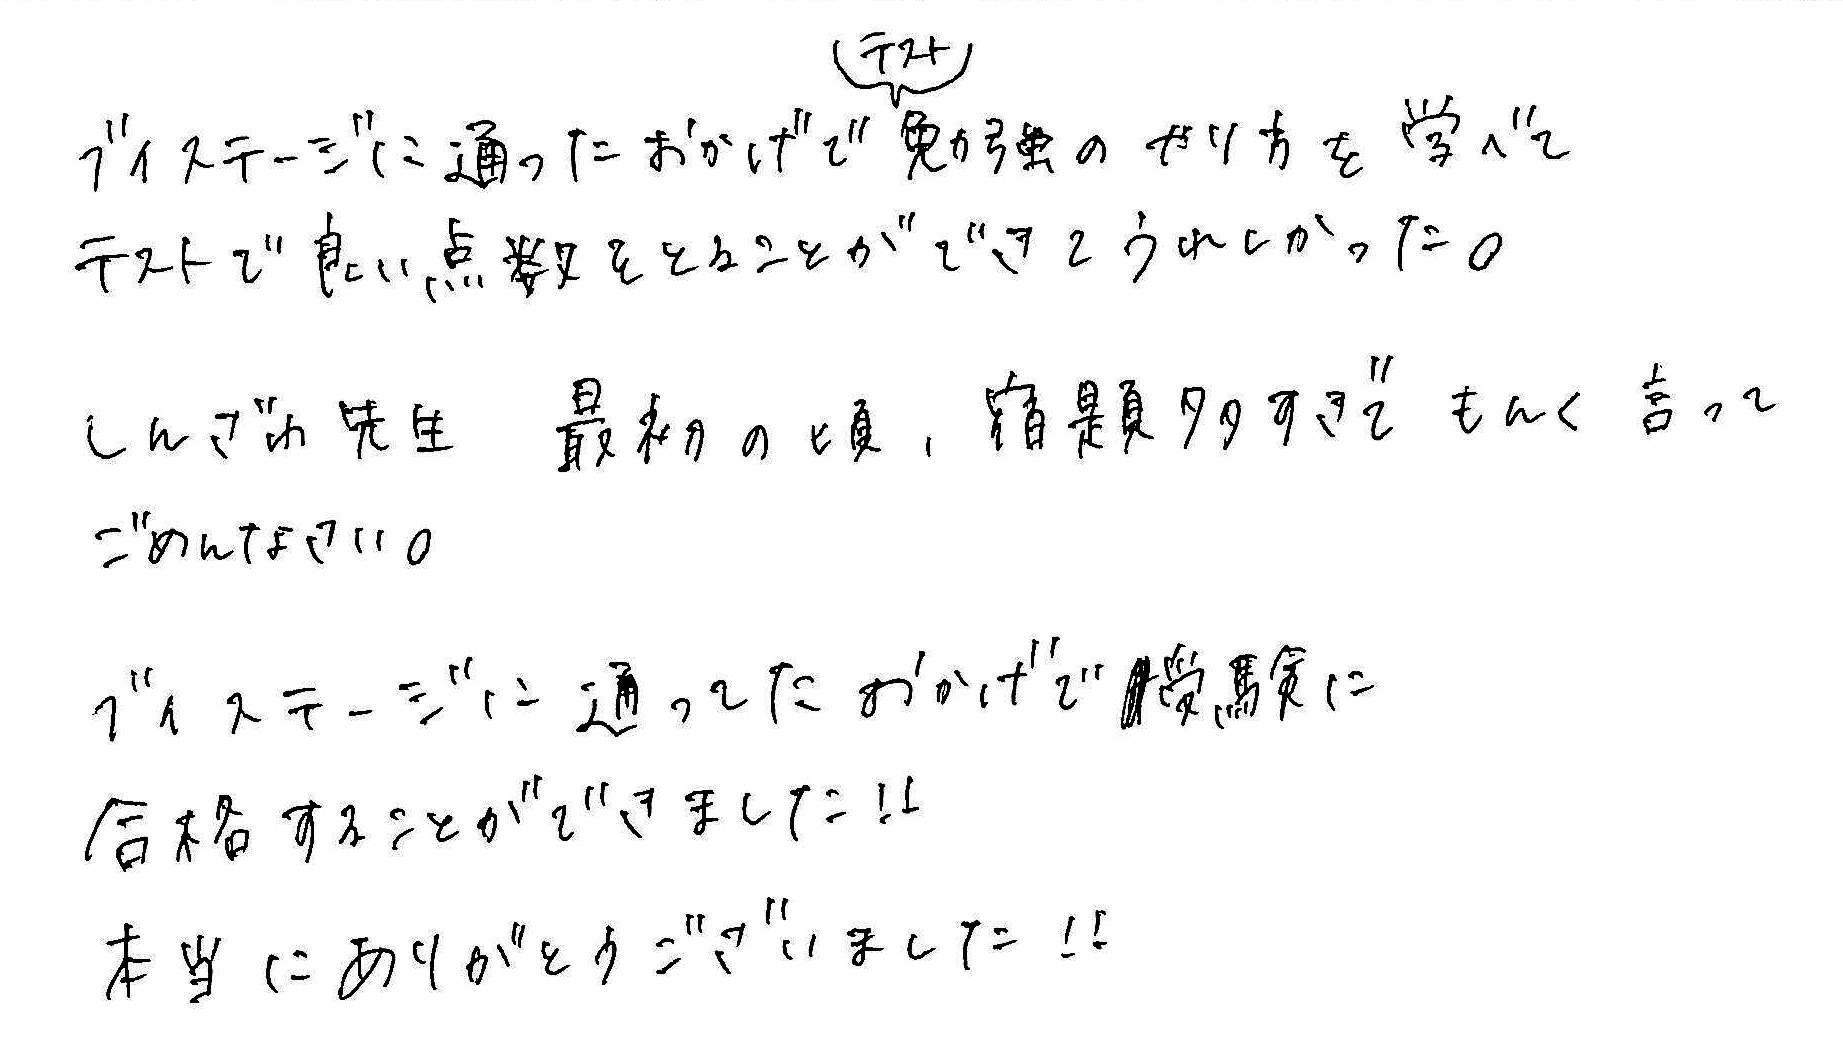 テスト
ディステージに通ったおかげで勉強のやり方を学べて
テストで良い点数をとることができてうれしかった。
しんざわ先生 最初の頃、宿題多すぎてもんく言って
ごめんなさい。
ディステージに通ってたおかげで受験に
合格することができました!!
本当にありがとうございました!!